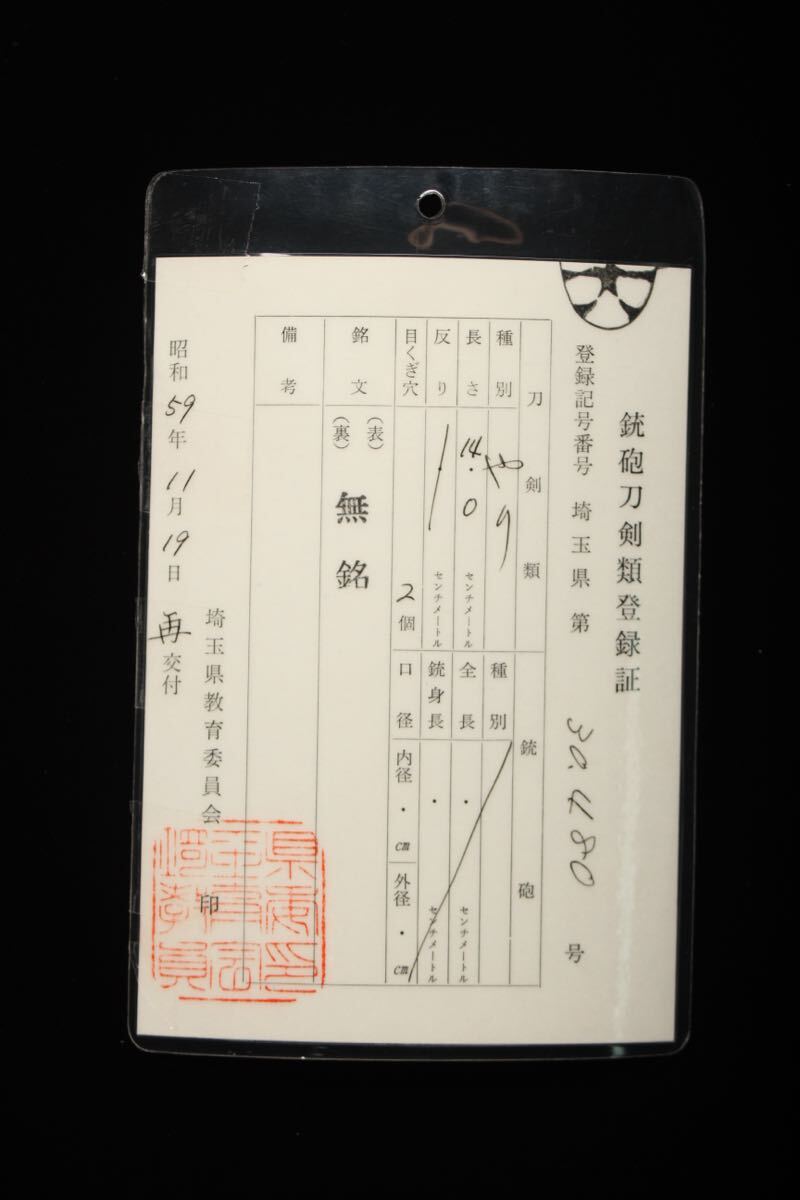 銃砲刀剣類登録証
登録記号番号 埼玉県 第 30480 号
刀剣類
種別 やり
長さ 14.0 センチメートル
反り センチメートル
目くぎ穴 2個
銘文 (表) (裏) 無銘
備考
銃砲
種別
全長 ・ センチメートル
銃身長 ・ センチメートル
口径 内径 ・ cm 外径 ・ cm
昭和59年11月19日 再交付
埼玉県教育委員会 印